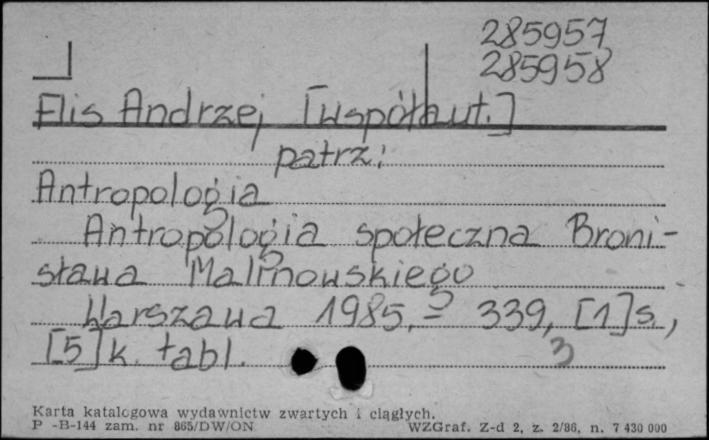 285957
285958
Elis Andrzej [współaut.]
patrz:
Antropologia
Antropologia społeczna Broni-
sława Malinowskiego
Warszawa 1985. - 339, [1] s.,
[5] k. tabl.
3
Karta katalogowa wydawnictw zwartych i ciągłych.
P -B-144 zam. nr 865/DW/ON WZGraf. Z-d 2, z. 2/86, n. 7 430 000